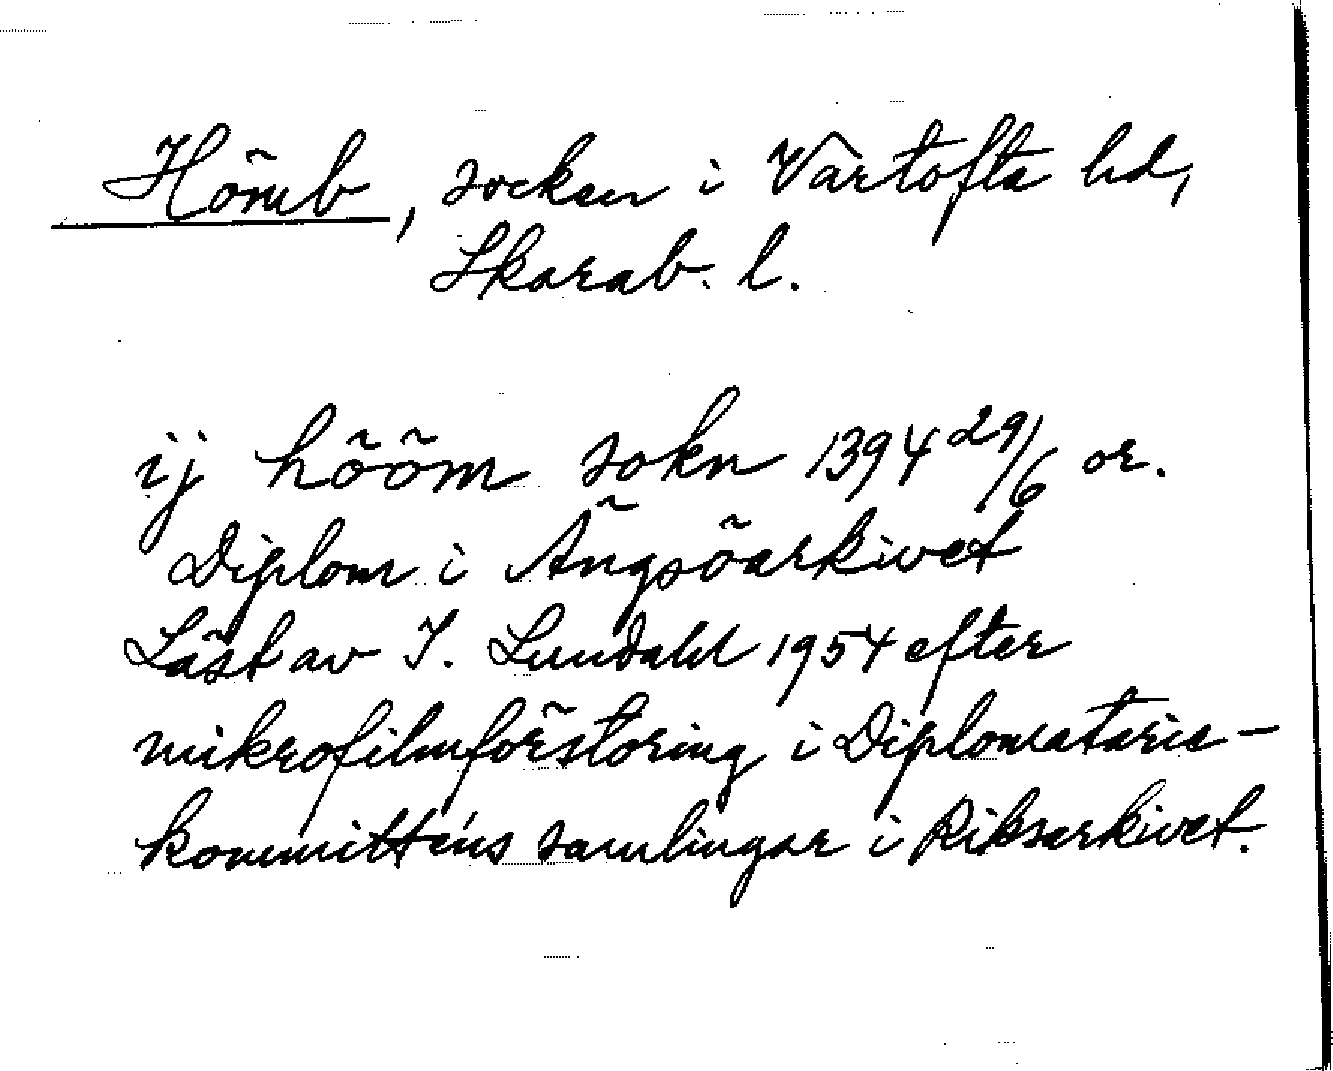 Hömb, socken i Vartofta hd,
Skarab. l.
ij hööm sokn 1394 29/6 or.
Diplom i Ängsöarkivet
Läst av I. Lundahl 1954 efter
mikrofilmförstoring i Diplomatarie-
kommitténs samlingar i Riksarkivet.